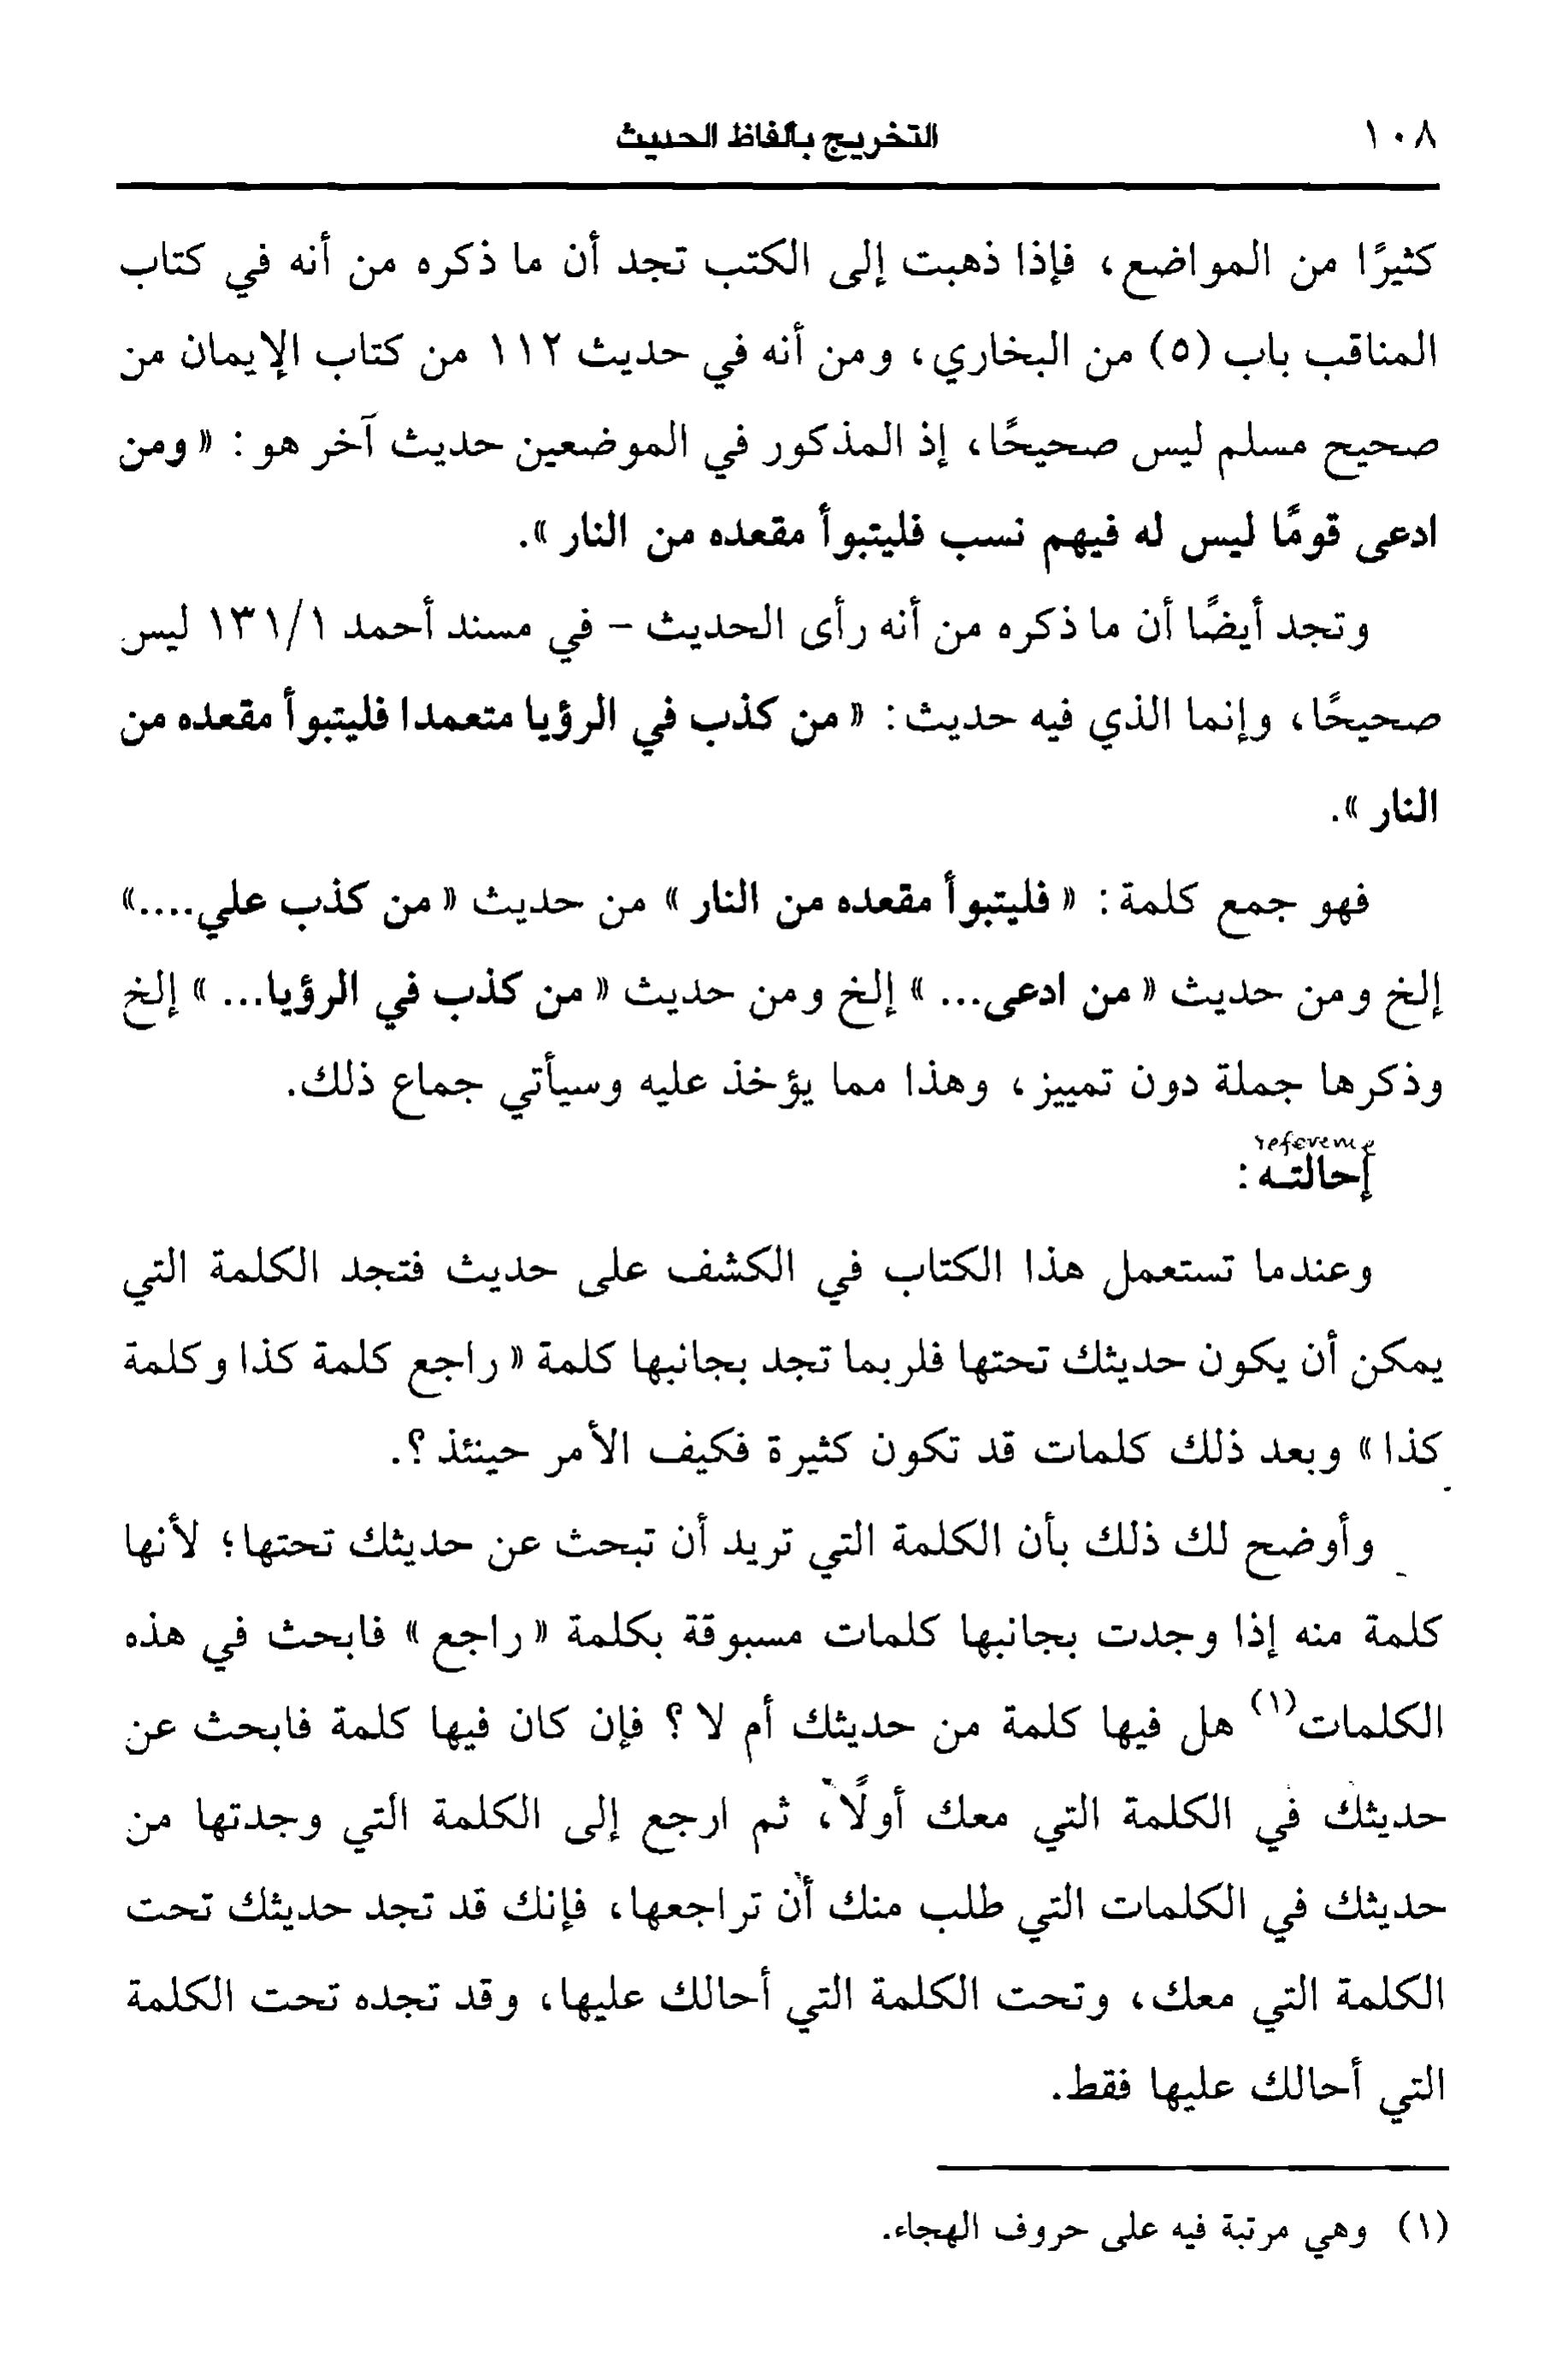 ١٠٨ التخريج بألفاظ الحديث
كثيرًا من المواضع، فإذا ذهبت إلى الكتب تجد أن ما ذكره من أنه في كتاب
المناقب باب (٥) من البخاري، ومن أنه في حديث ١١٢ من كتاب الإيمان من
صحيح مسلم ليس صحيحًا، إذ المذكور في الموضعين حديث آخر هو : « ومن
ادعى قومًا ليس له فيهم نسب فليتبوأ مقعده من النار ».
وتجد أيضًا أن ما ذكره من أنه رأى الحديث – في مسند أحمد ١٣١/١ ليس
صحيحًا، وإنما الذي فيه حديث : « من كذب في الرؤيا متعمدا فليتبوأ مقعده من
النار ».
فهو جمع كلمة : « فليتبوأ مقعده من النار » من حديث « من كذب علي....»
إلخ ومن حديث « من ادعى... » إلخ ومن حديث « من كذب في الرؤيا... » إلخ
وذكرها جملة دون تمييز، وهذا مما يؤخذ عليه وسيأتي جماع ذلك.
reference
إحالته :
وعندما تستعمل هذا الكتاب في الكشف على حديث فتجد الكلمة التي
يمكن أن يكون حديثك تحتها فلربما تجد بجانبها كلمة « راجع كلمة كذا وكلمة
كذا » وبعد ذلك كلمات قد تكون كثيرة فكيف الأمر حينئذ ؟.
وأوضح لك ذلك بأن الكلمة التي تريد أن تبحث عن حديثك تحتها؛ لأنها
كلمة منه إذا وجدت بجانبها كلمات مسبوقة بكلمة « راجع » فابحث في هذه
الكلمات(١) هل فيها كلمة من حديثك أم لا ؟ فإن كان فيها كلمة فابحث عن
حديثك في الكلمة التي معك أولًا، ثم ارجع إلى الكلمة التي وجدتها من
حديثك في الكلمات التي طلب منك أن تراجعها، فإنك قد تجد حديثك تحت
الكلمة التي معك، وتحت الكلمة التي أحالك عليها، وقد تجده تحت الكلمة
التي أحالك عليها فقط.
(١) وهي مرتبة فيه على حروف الهجاء.